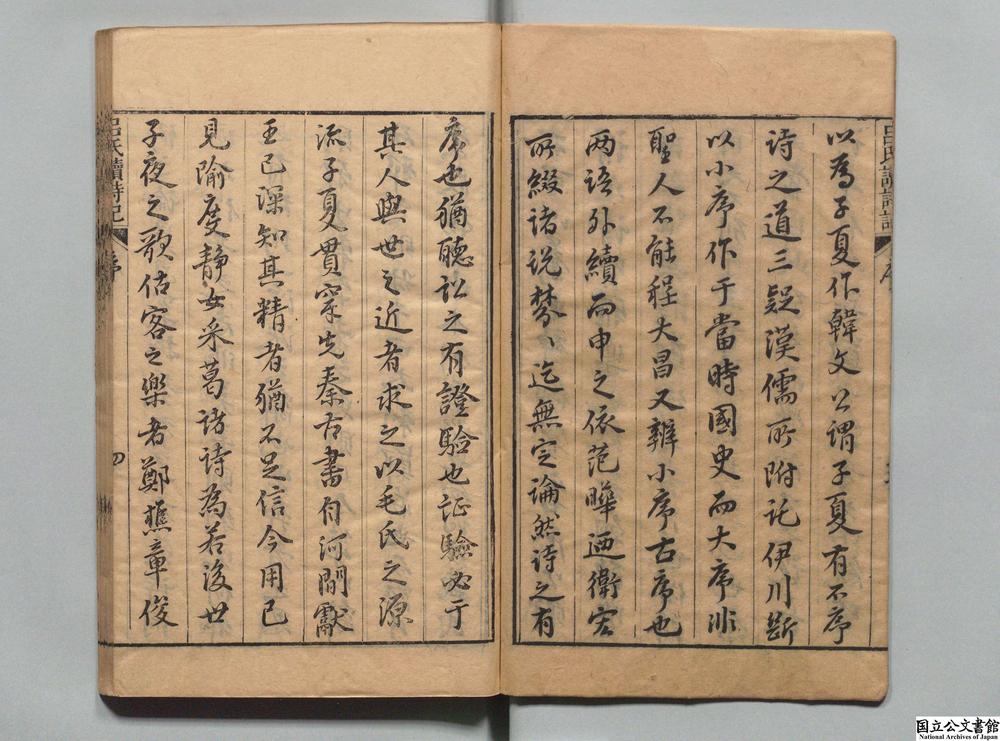 以為子夏作韓文公謂子夏有不序
詩之道三疑漢儒所附託伊川斷
以小序作于當時國史而大序非
聖人不能程大昌又辨小序古序也
两语外續而申之依范曄迺衛宏
所綴诸说棼〻迄無定論然诗之有
序也猶聽訟之有證驗也证驗必于
其人與世之近者求之以毛氏之源
流子夏貫穿先秦古書自河間獻
王已深知其精者猶不足信今用己
見隃度靜女采葛诸诗為若後世
子夜之歌估客之樂者鄭樵章俊
呂氏讀詩記
序
四
国立公文書館
National Archives of Japan